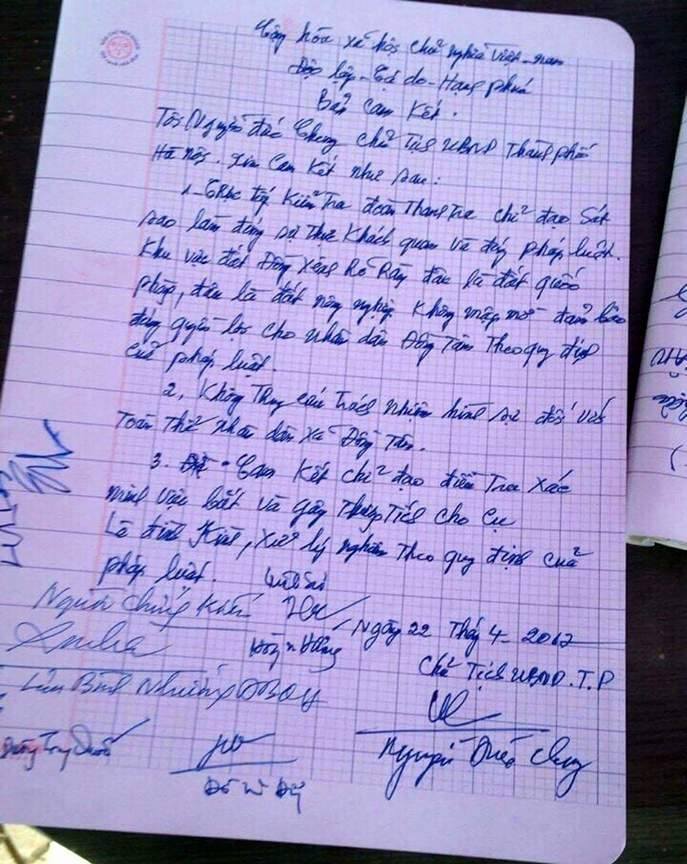 Cộng hòa xã hội chủ nghĩa Việt-nam
Độc lập-Tự do-Hạnh phúc
Bản Cam Kết.
Tôi Nguyễn đức Chung chủ tịch UBND Thành phố
Hà nội. xin Cam Kết như sau:
1- Trực tiếp Kiểm Tra đoàn Thanh tra chỉ đạo Sát
sao làm đúng sự thật Khách quan và đúng pháp luật.
Khu vực đất Đồng Xênh Rõ Ràng đâu là đất quốc
phòng, đâu là đất nông nghiệp Không mập mờ đảm bảo
đúng quyền lợi cho nhân dân Đồng Tâm Theo quy định
của pháp luật.
2, Không Truy cứu trách nhiệm hình sự đối với
Toàn Thể nhân dân xã Đồng Tâm.
3. Cam Kết chỉ đạo điều Tra xác
minh việc bắt và gây Thương Tích cho Cụ
Lê đình Kình, xử lý nghiêm Theo quy định của
pháp luật.
Người chứng Kiến
Ngày 22 Tháng 4-2017
Chủ Tịch UBND.T.P
Lưu Bình Nhưỡng ĐBQH
Nguyễn Đức Chung